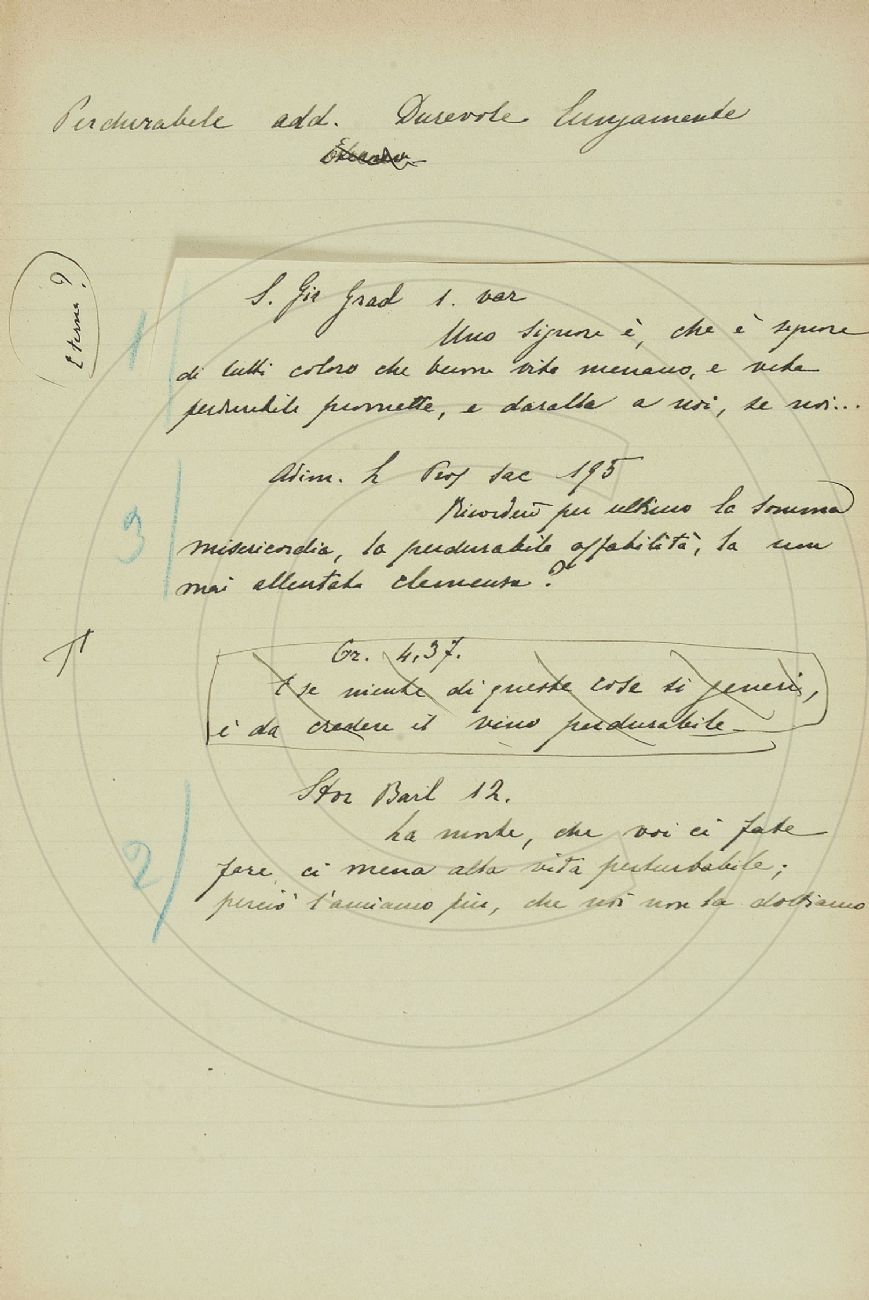 Perdurabile add. Durevole lungamente
Eterna?
1
S. Gir Grad 1. var
Uno signore è, che è signore
di tutti coloro che buona vita menano, e vita
perdurabile promette, e daralla a noi, se noi...
3
Adim. L Pros sac 195
per ultimo la somma
misericordia, la perdurabile affabilità, la non
mai allentata clemenza?
Cr. 4,37.
E se niente di queste cose si generi,
è da credere il vino perdurabile
2
Stor Barl 12.
La morte, che voi ci fate
fare, ci mena alla vita perdurabile;
perciò l'amiamo più, che noi non la dottiamo